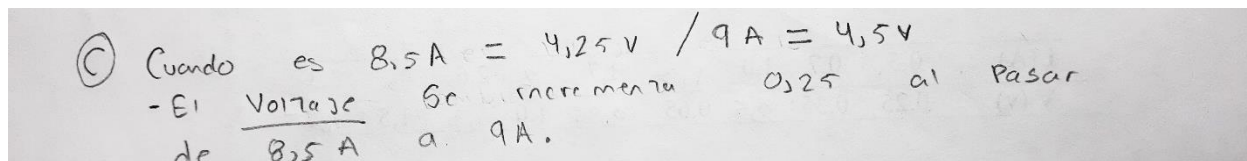 Ⓒ Cuando es 8,5 A = 4,25 V / 9 A = 4,5 V
- El Voltaje se incrementa 0,25 al Pasar
de 8,5 A a 9 A.